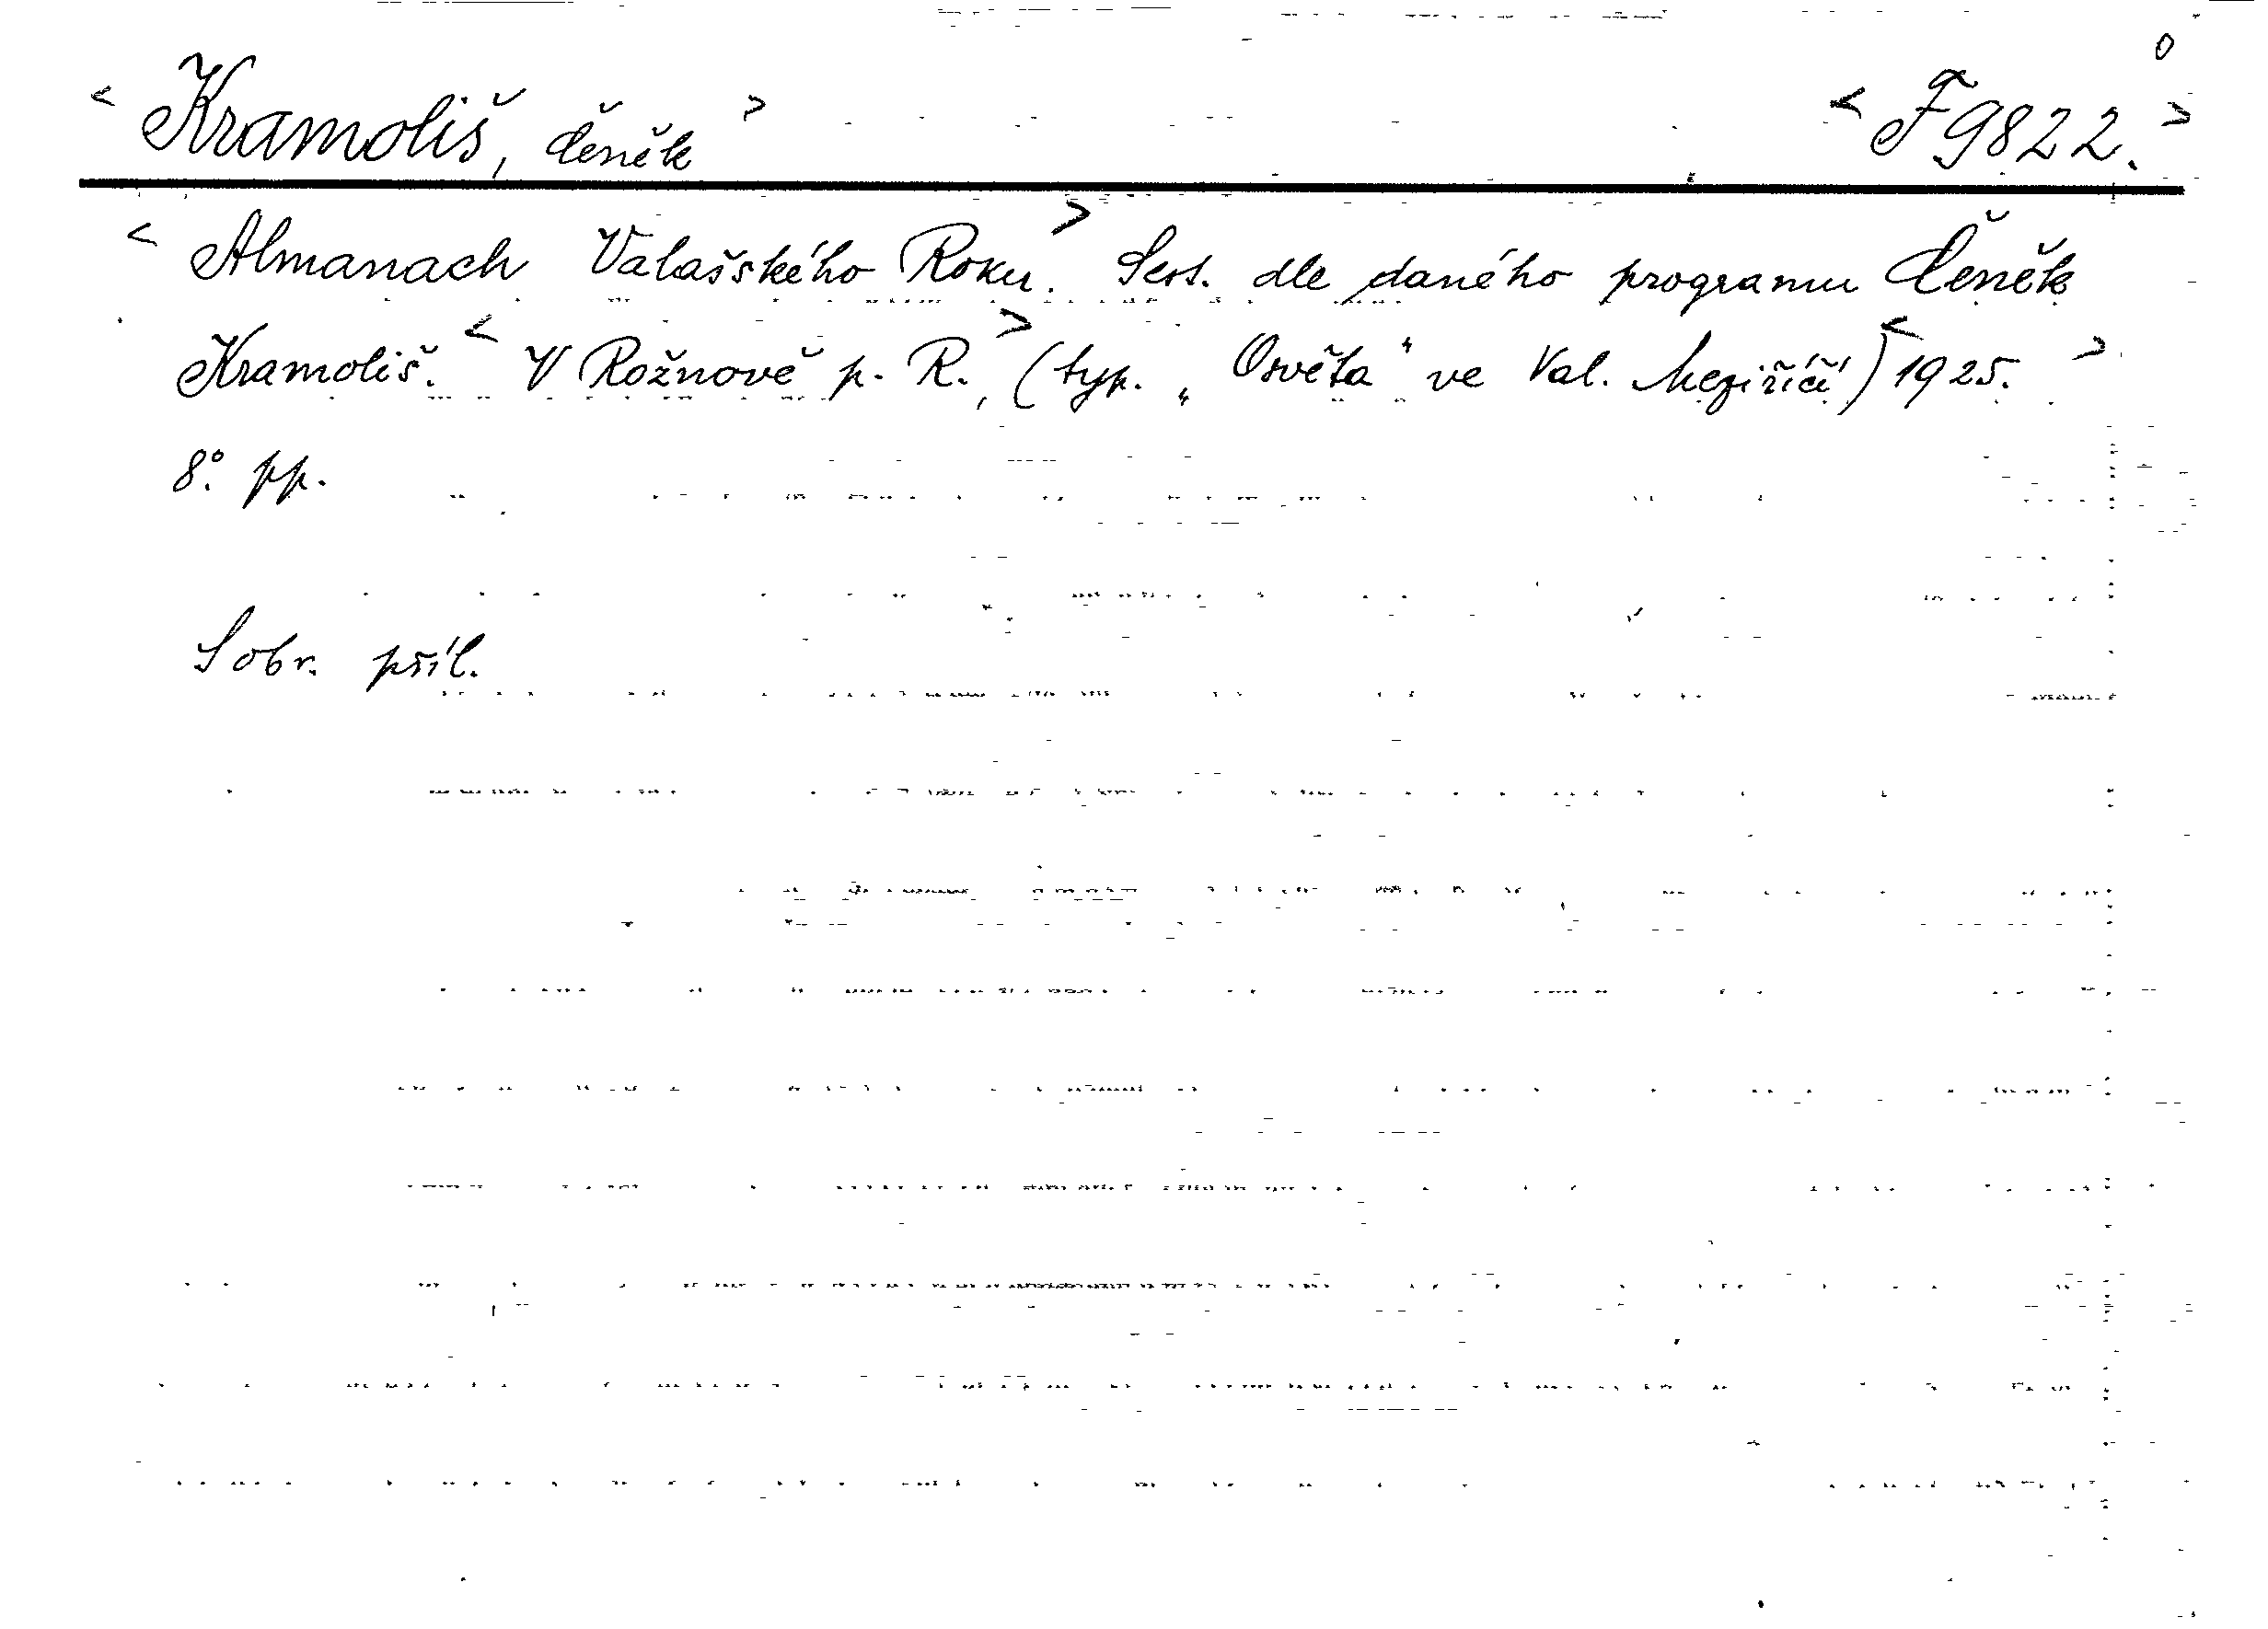 0
< Kramoliš, Čeněk > < F 9822. >
< Almanach Valašského Roku. > Sest. dle daného programu Čeněk
Kramoliš. < V Rožnově p. R. >, (typ. „Osvěta“ ve Val. Meziříčí) < 1925. >
8°. pp.
S obr. příl.